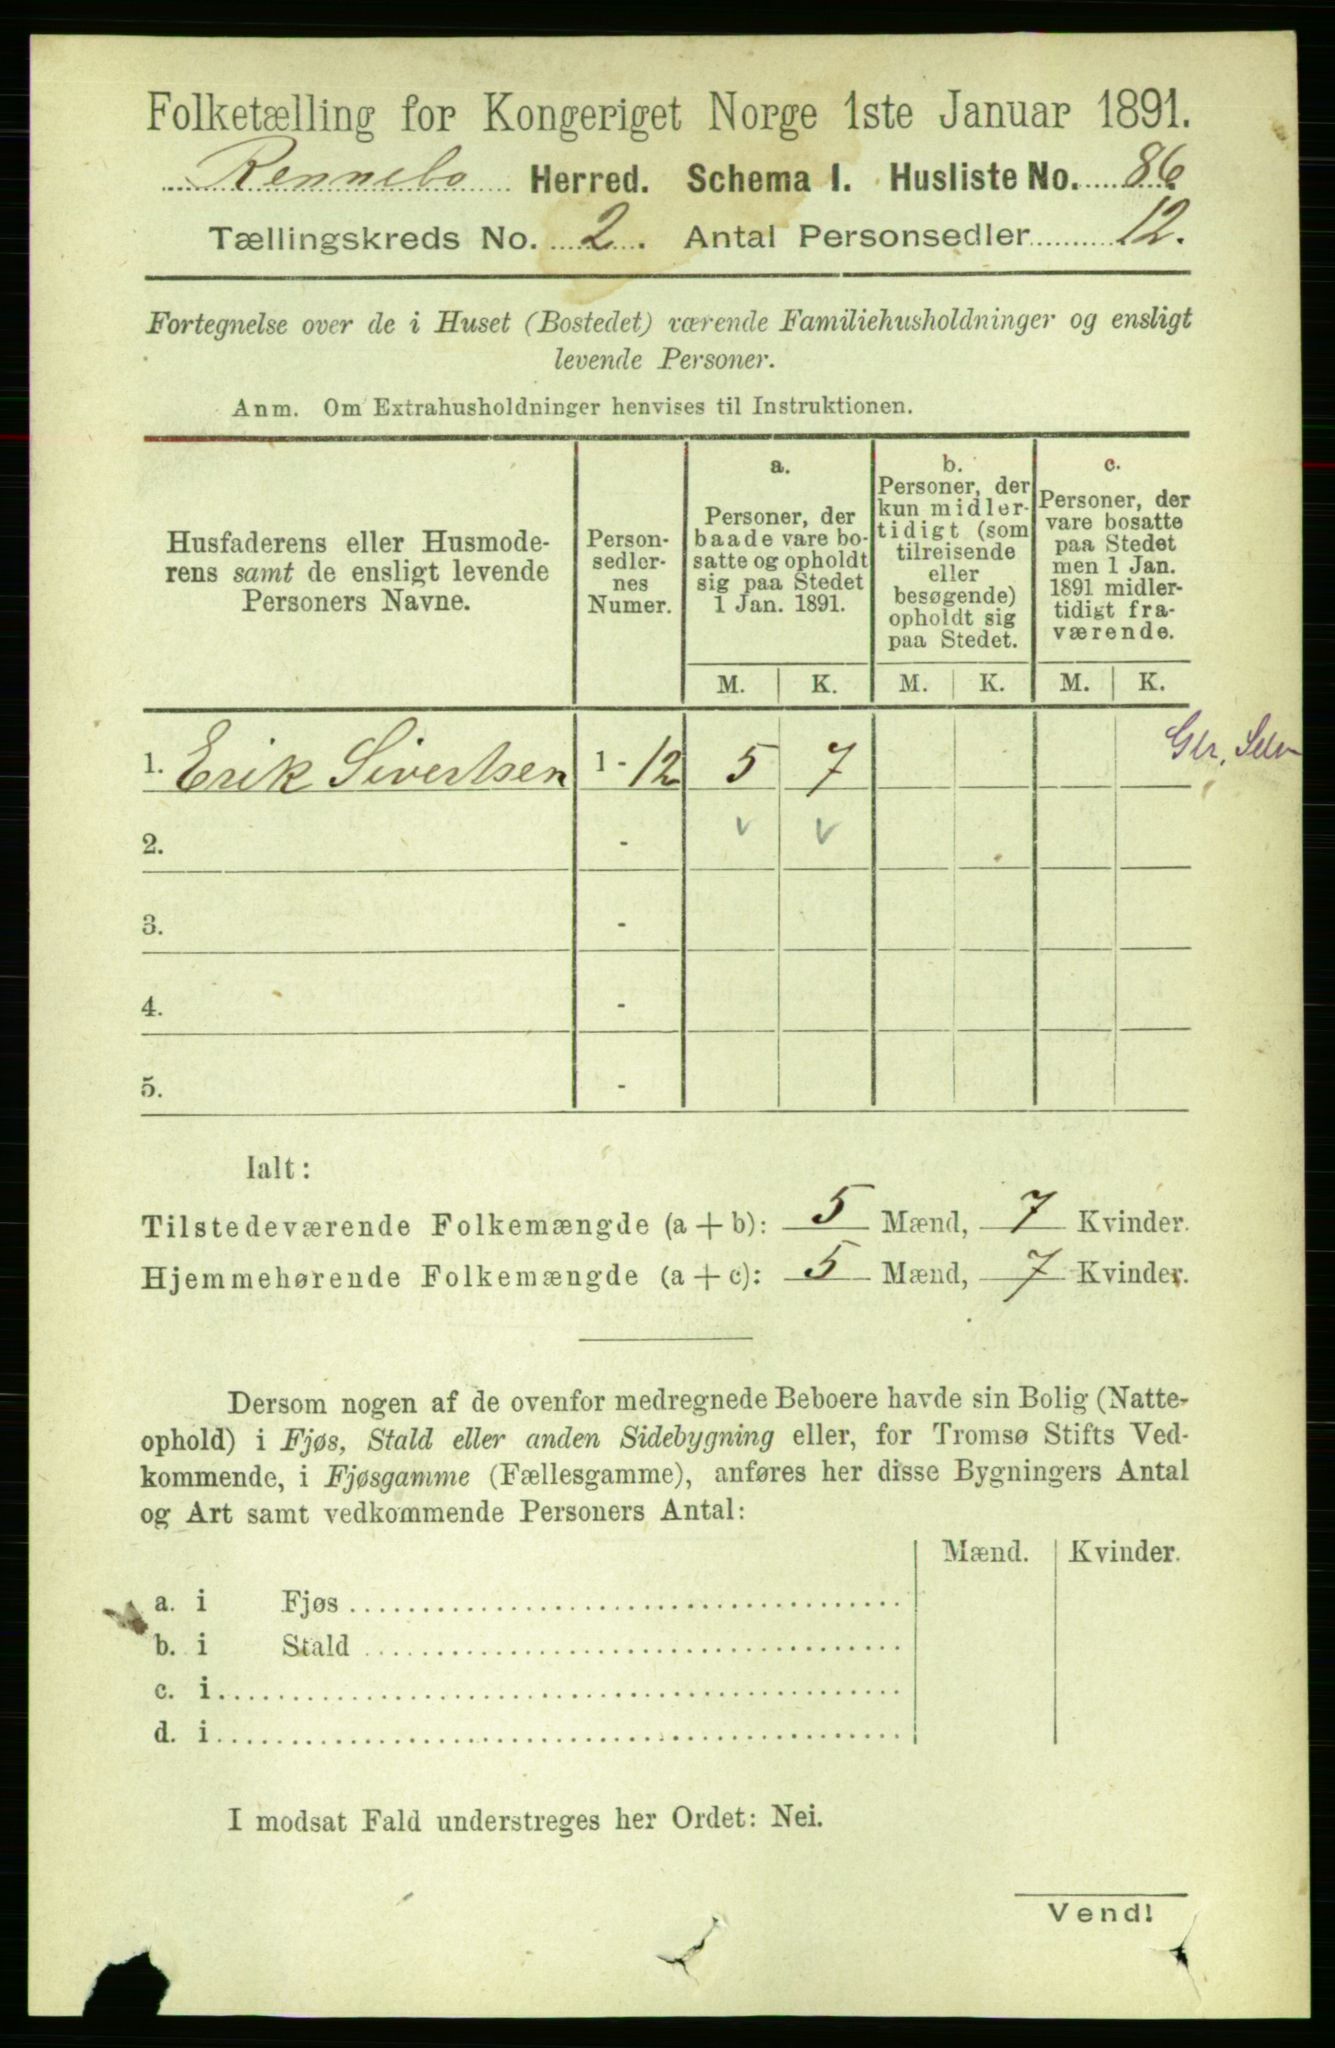 Folketælling for Kongeriget Norge 1ste Januar 1891.
Rennebo Herred. Schema I. Husliste No. 86
Tællingskreds No. 2. Antal Personsedler 12.
Fortegnelse over de i Huset (Bostedet) værende Familiehusholdninger og ensligt
levende Personer.
Anm. Om Extrahusholdninger henvises til Instruktionen.
Husfaderens eller Husmode-
rens samt de ensligt levende
Personers Navne.
Person-
sedler-
nes
Numer.
a.
Personer, der
baade vare bo-
satte og opholdt
sig paa Stedet
1 Jan. 1891.
b.
Personer, der
kun midler-
tidigt (som
tilreisende
eller
besøgende)
opholdt sig
paa Stedet.
c.
Personer, der
vare bosatte
paa Stedet
men 1 Jan.
1891 midler-
tidigt fra-
værende.
M. K. M. K. M. K.
1. Erik Sivertsen 1 - 12 5 7
2. - v v
3. -
4. -
5. -
Ialt:
Tilstedeværende Folkemængde (a + b): 5 Mænd, 7 Kvinder.
Hjemmehørende Folkemængde (a + c): 5 Mænd, 7 Kvinder.
Dersom nogen af de ovenfor medregnede Beboere havde sin Bolig (Natte-
ophold) i Fjøs, Stald eller anden Sidebygning eller, for Tromsø Stifts Ved-
kommende, i Fjøsgamme (Fællesgamme), anføres her disse Bygningers Antal
og Art samt vedkommende Personers Antal:
Mænd. Kvinder.
a. i Fjøs
b. i Stald
c. i
d. i
I modsat Fald understreges her Ordet: Nei.
Vend!